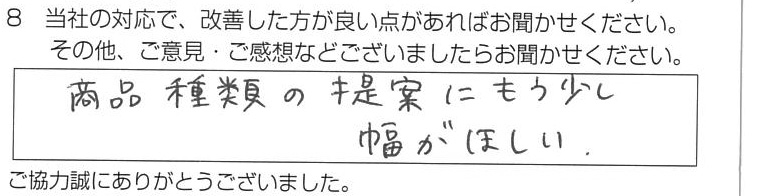 8 当社の対応で、改善した方が良い点があればお聞かせください。
その他、ご意見・ご感想などございましたらお聞かせください。
商品種類の提案にもう少し
幅がほしい.
ご協力誠にありがとうございました。